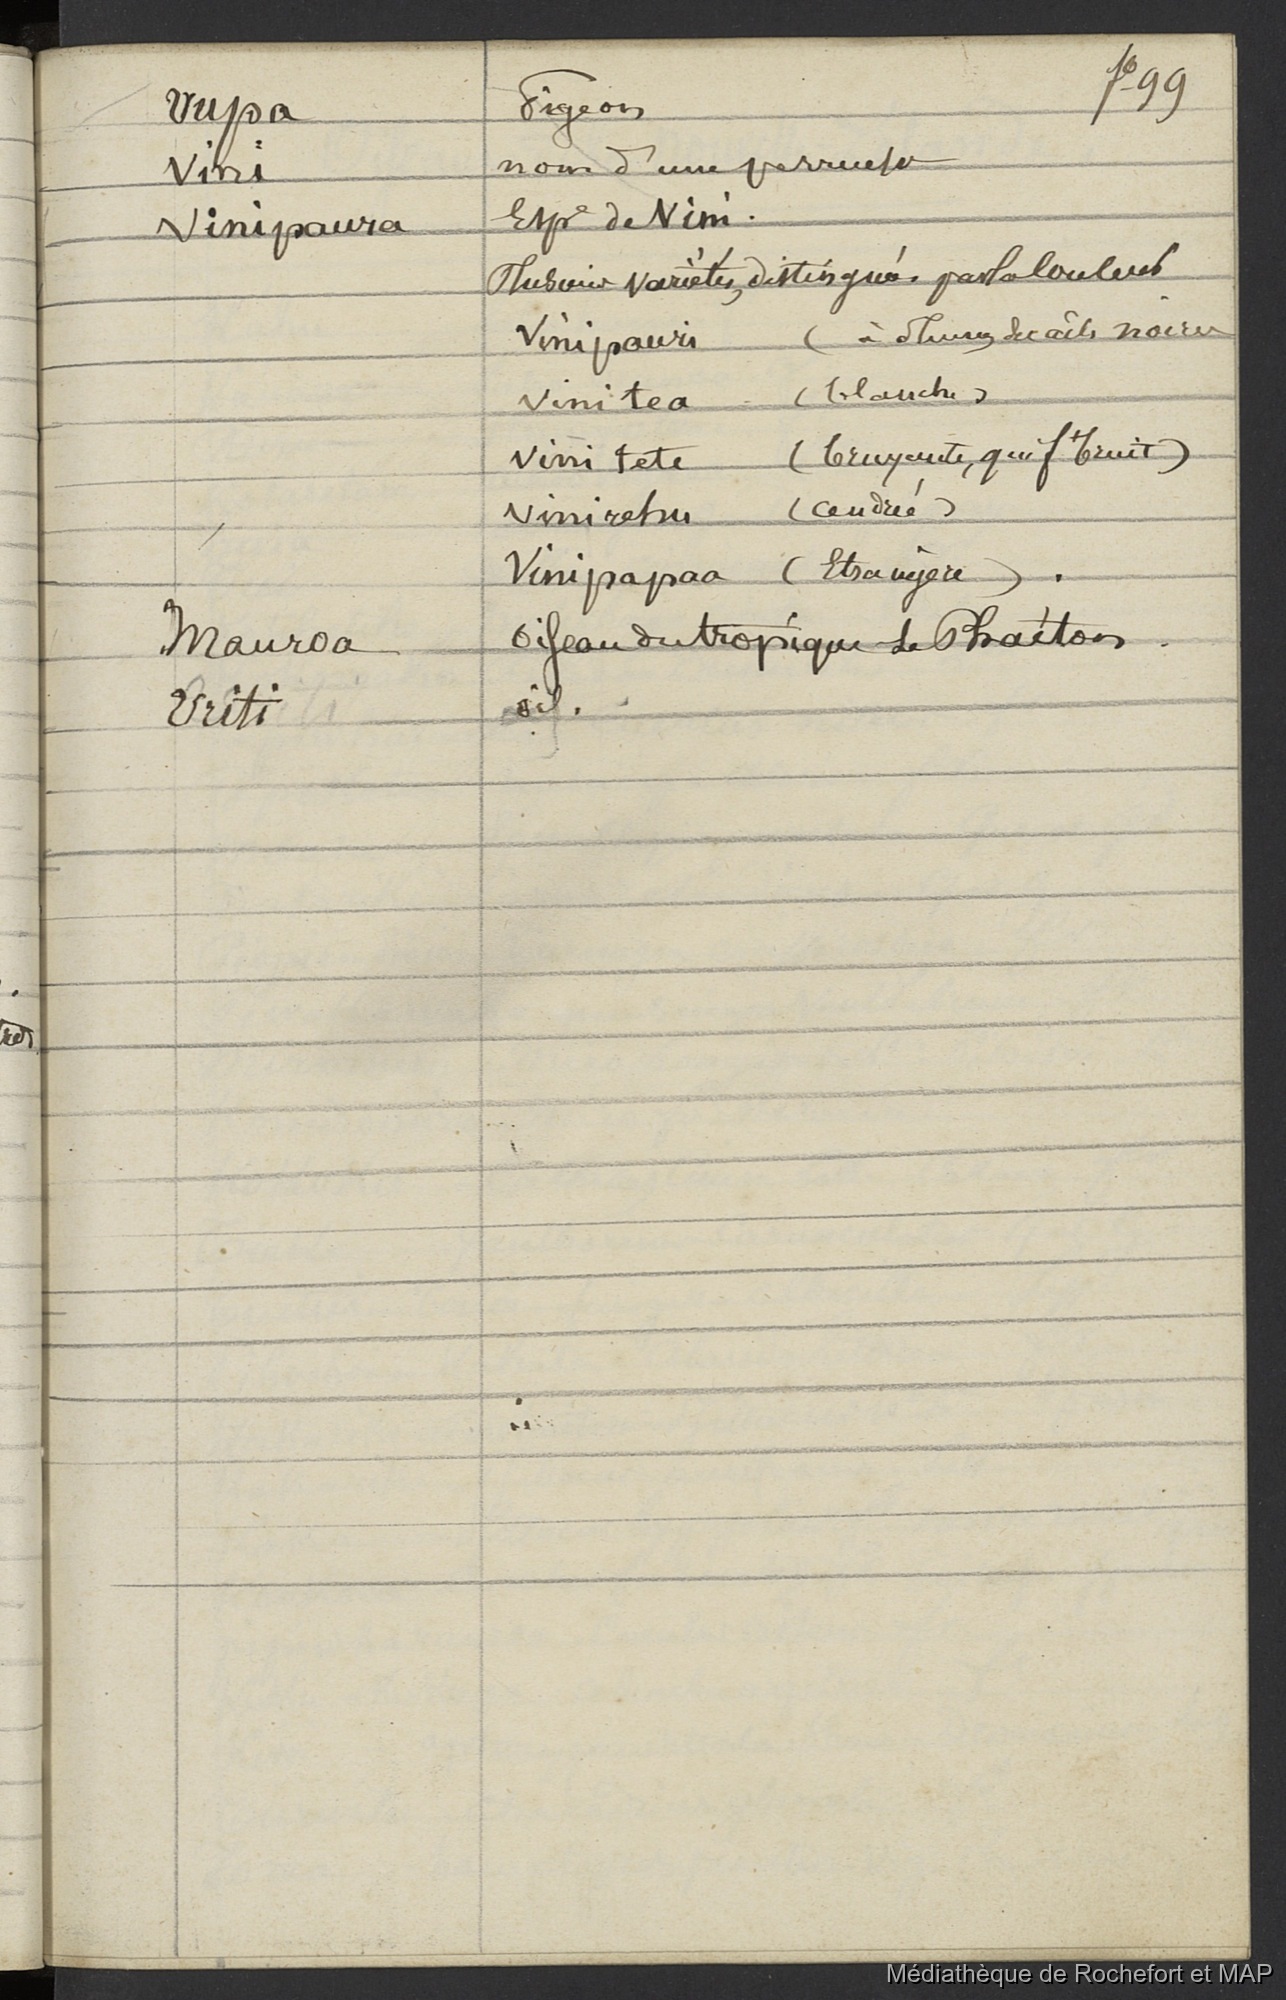 fo 99
Uupa Pigeon
Vini nom d'une perruche
Vinipaura Espe de Nini.
Plusieurs variétés, distinguées par la couleur
Vinipauri ( à plumes noires
Vini tea (blanche)
Vini tete (bruyante, qui ft bruit)
Vinirehu (cendrée)
Vinipapaa (Etrangère).
Mauroa Oiseau du tropique le Phaéton.
Uriti id.
Médiathèque de Rochefort et MAP